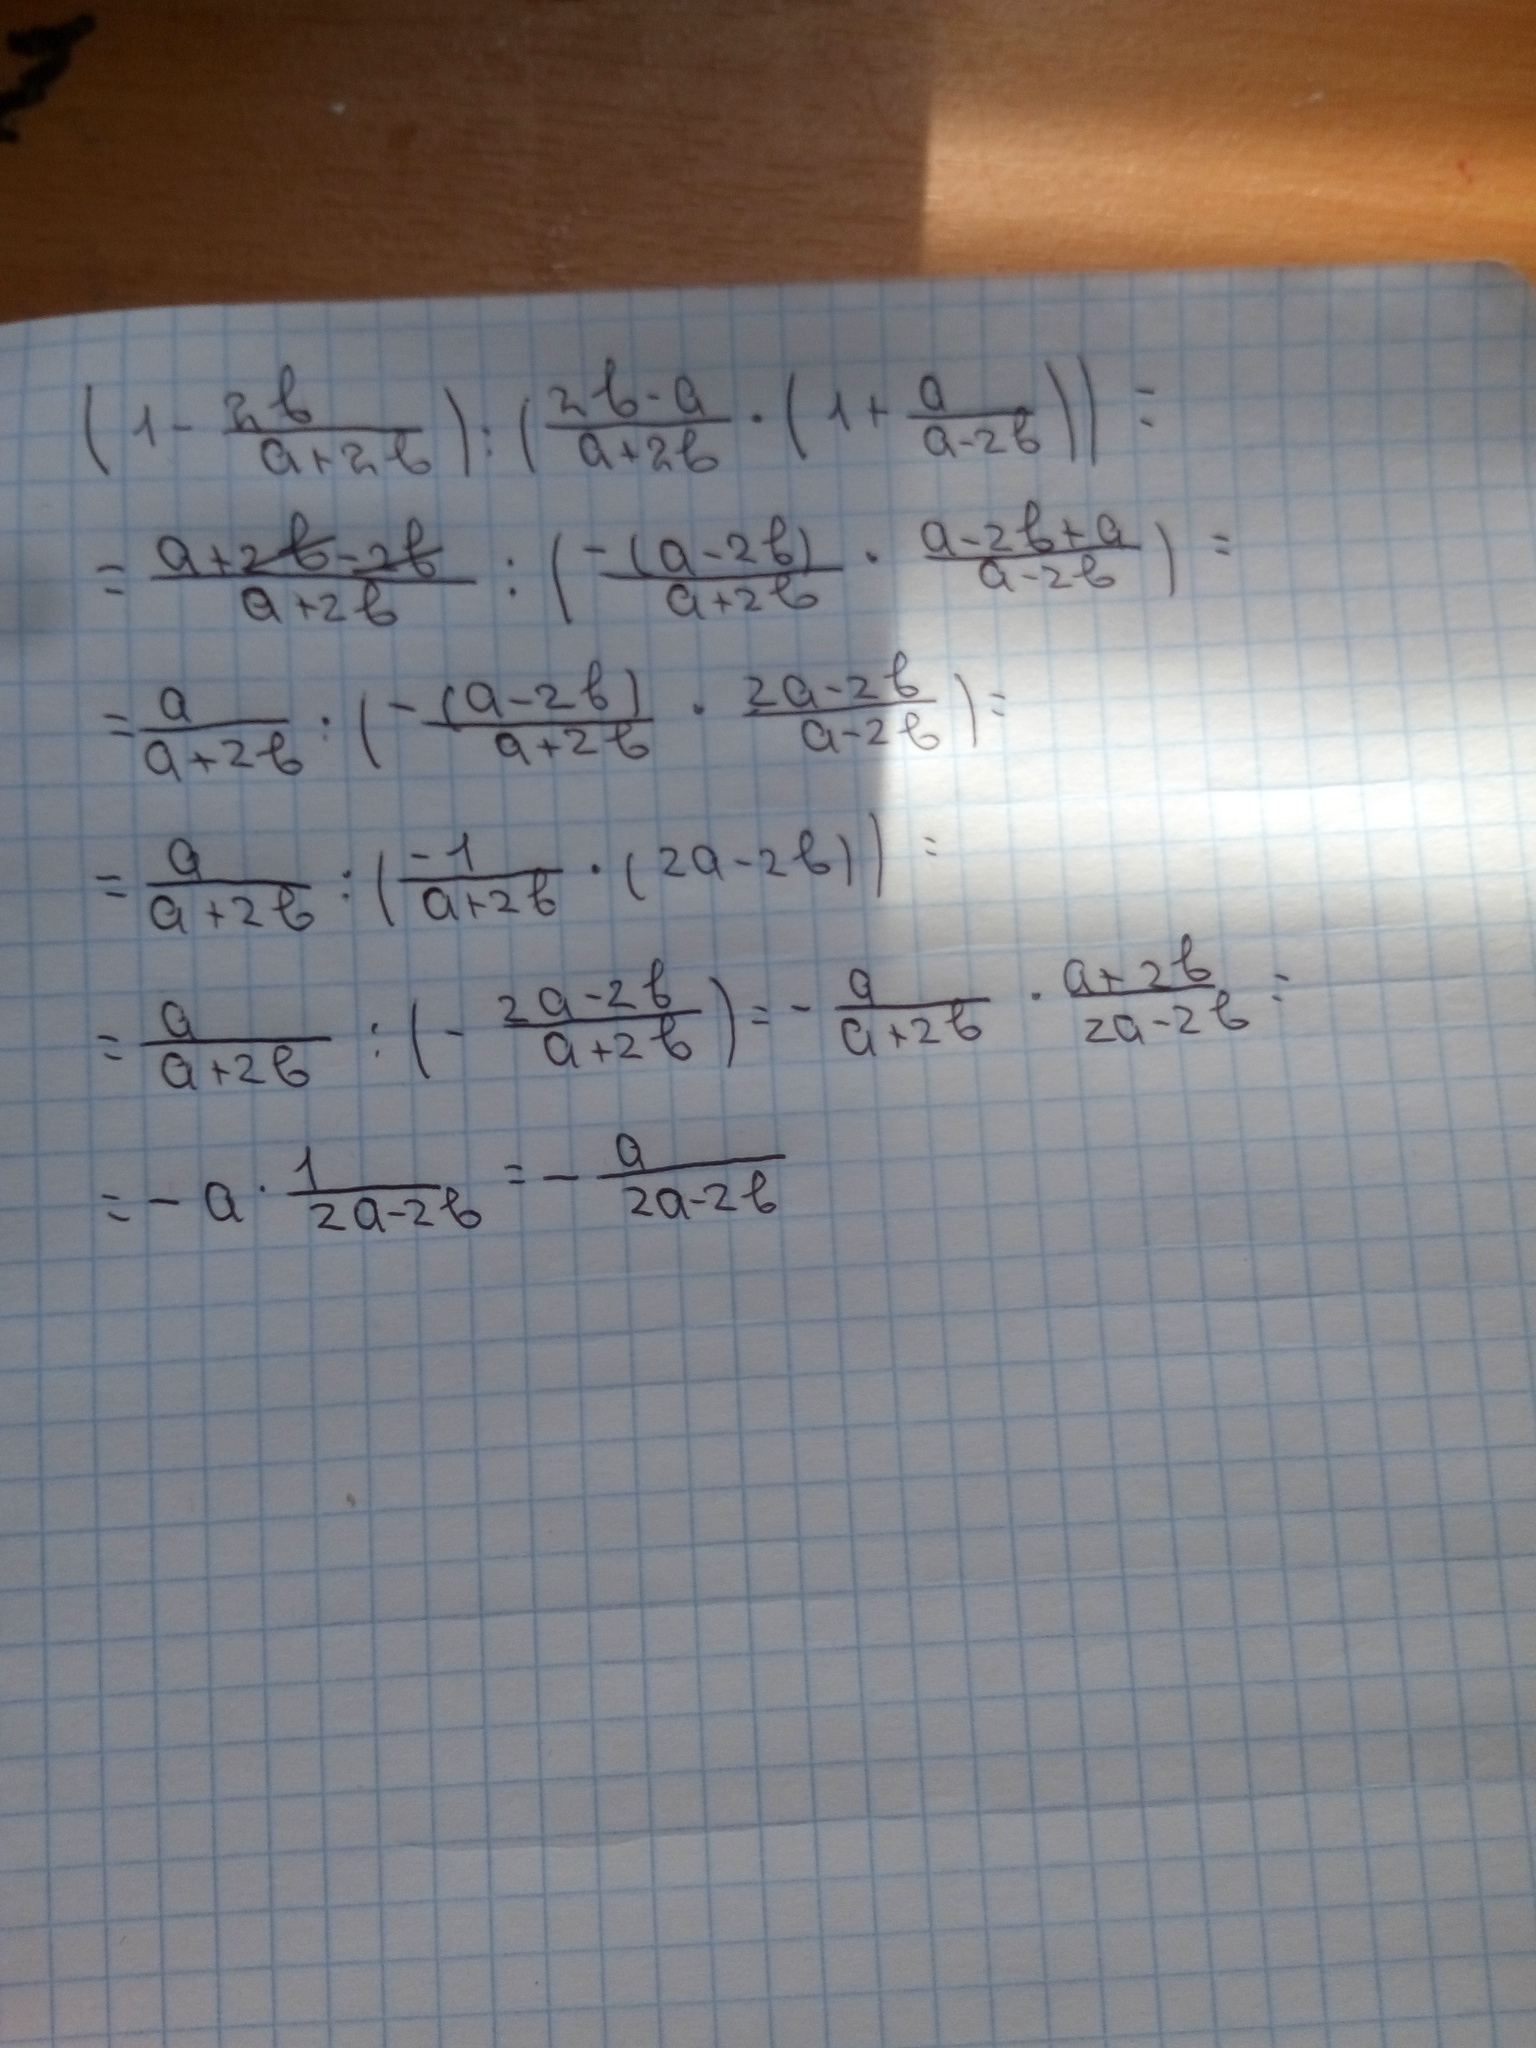 (1 - 2b/(a+2b)) : ((2b-a)/(a+2b) · (1 + a/(a-2b))) =
= (a+2b-2b)/(a+2b) : (-(a-2b)/(a+2b) · (a-2b+a)/(a-2b)) =
= a/(a+2b) : (-(a-2b)/(a+2b) · (2a-2b)/(a-2b)) =
= a/(a+2b) : (-1/(a+2b) · (2a-2b)) =
= a/(a+2b) : (- (2a-2b)/(a+2b)) = - a/(a+2b) · (a+2b)/(2a-2b) =
= - a · 1/(2a-2b) = - a/(2a-2b)